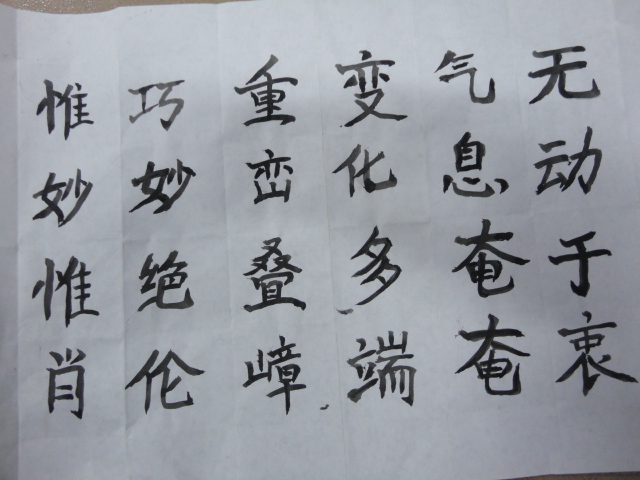 无动于衷
气息奄奄
变化多端
重峦叠嶂
巧妙绝伦
惟妙惟肖